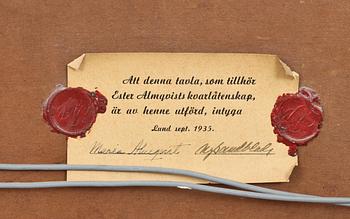 Att denna tavla, som tillhör
Ester Almqvists kvarlåtenskap,
är av henne utförd, intyga
Lund sept. 1935.
Maria Almqvist